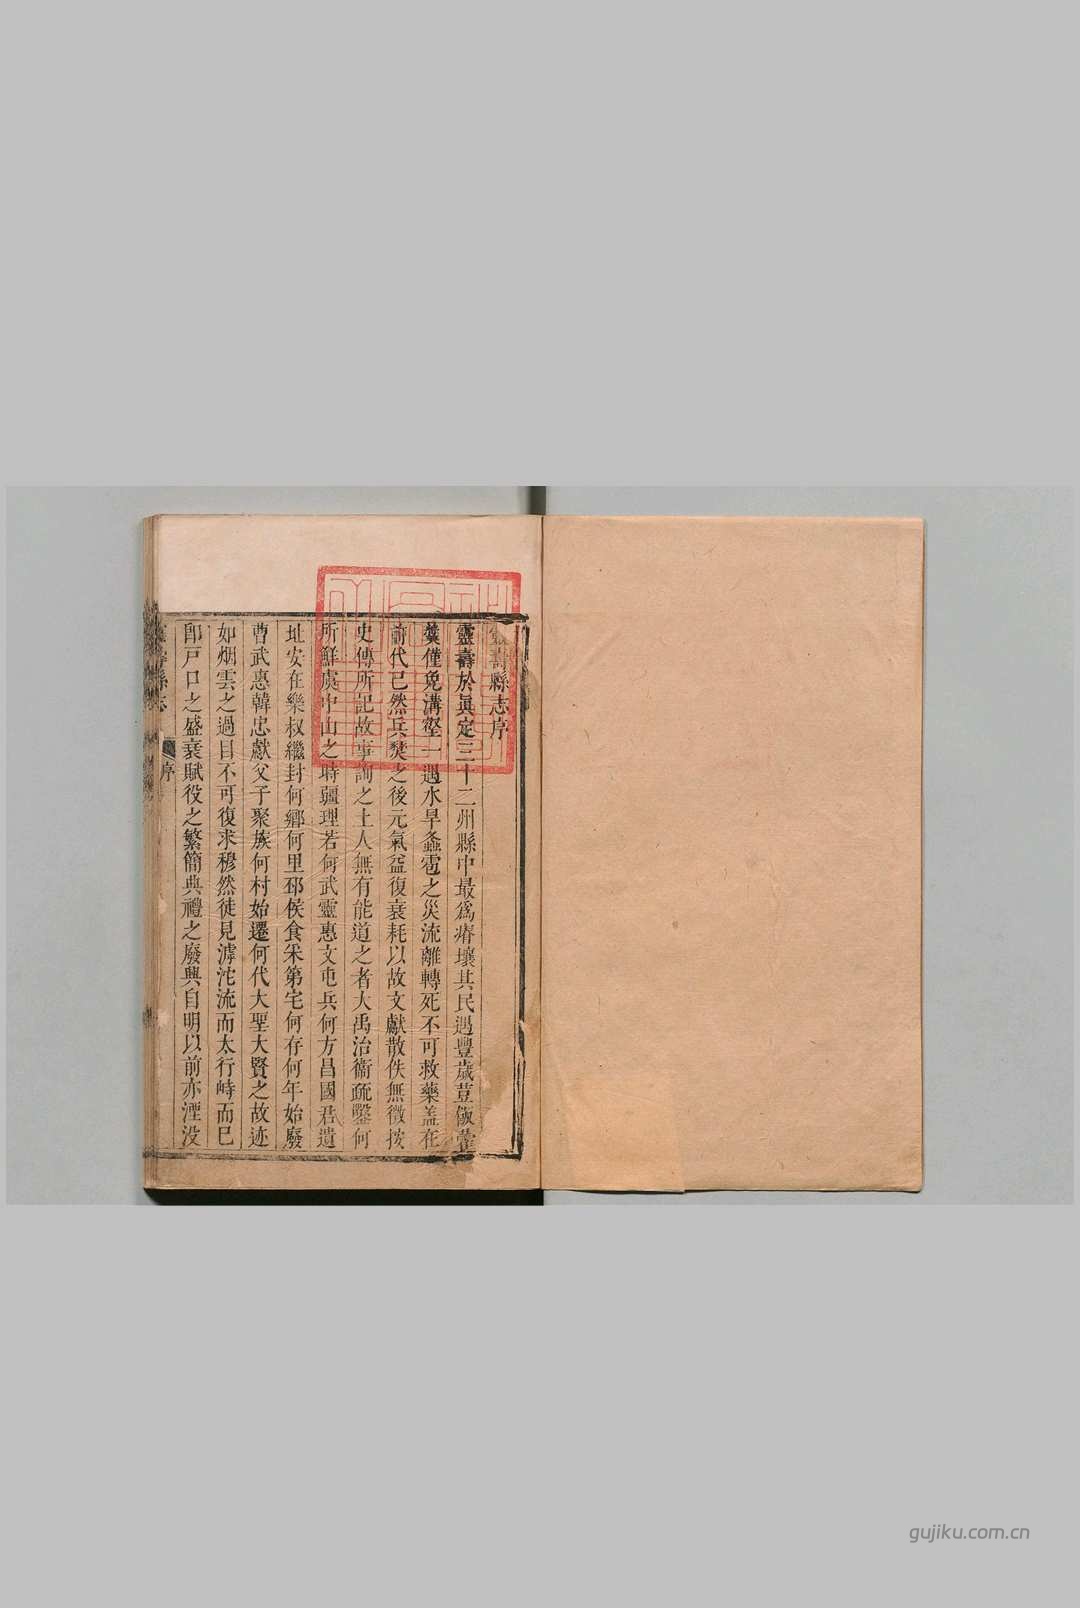 靈壽縣志序
靈壽於眞定三十二州縣中最爲瘠壤其民遇豐歲荳飯藿
羹僅免溝壑一遇水旱螽雹之災流離轉死不可救藥盖在
前代已然兵燹之後元氣益復衰耗以故文獻散佚無徵按
史傳所記故事詢之土人無有能道之者大禹治衞疏鑿何
所鮮虞中山之時疆理若何武靈惠文屯兵何方昌國君遺
址安在樂叔繼封何鄉何里邳侯食采第宅何存何年始廢
曹武惠韓忠獻父子聚族何村始遷何代大聖大賢之故迹
如烟雲之過目不可復求穆然徒見滹沱流而太行峙而已
卽戸口之盛衰賦役之繁簡典禮之廢興自明以前亦湮没
縣志
序
gujiku.com.cn